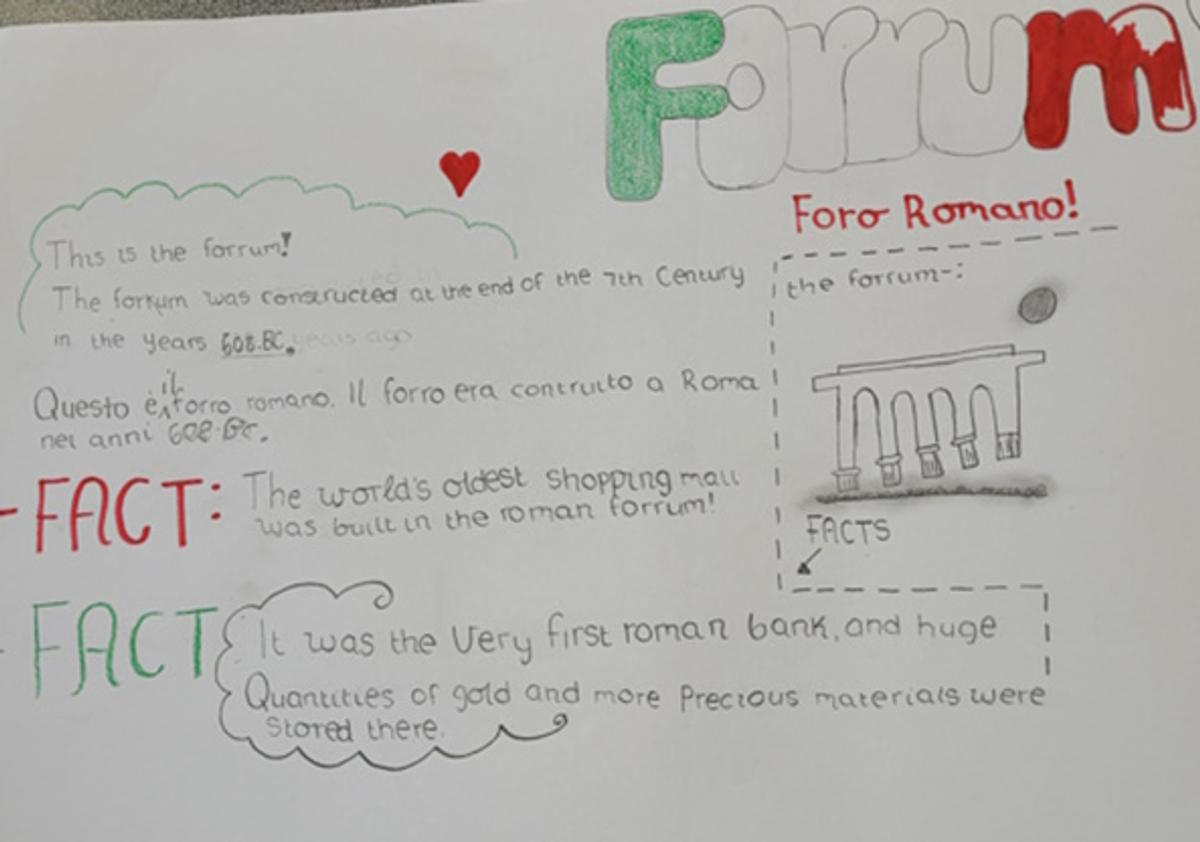 Forrum
Foro Romano!
This is the forrum!
The forrum was constructed at the end of the 7th Century
in the years 608.BC. years ago
Questo è il forro romano. Il forro era contruito a Roma
nei anni 608.BC.
the forrum-:
FACTS
-FACT: The world's oldest shopping mall
was built in the roman forrum!
- FACT It was the very first roman bank, and huge
Quantities of gold and more Precious materials were
Stored there.